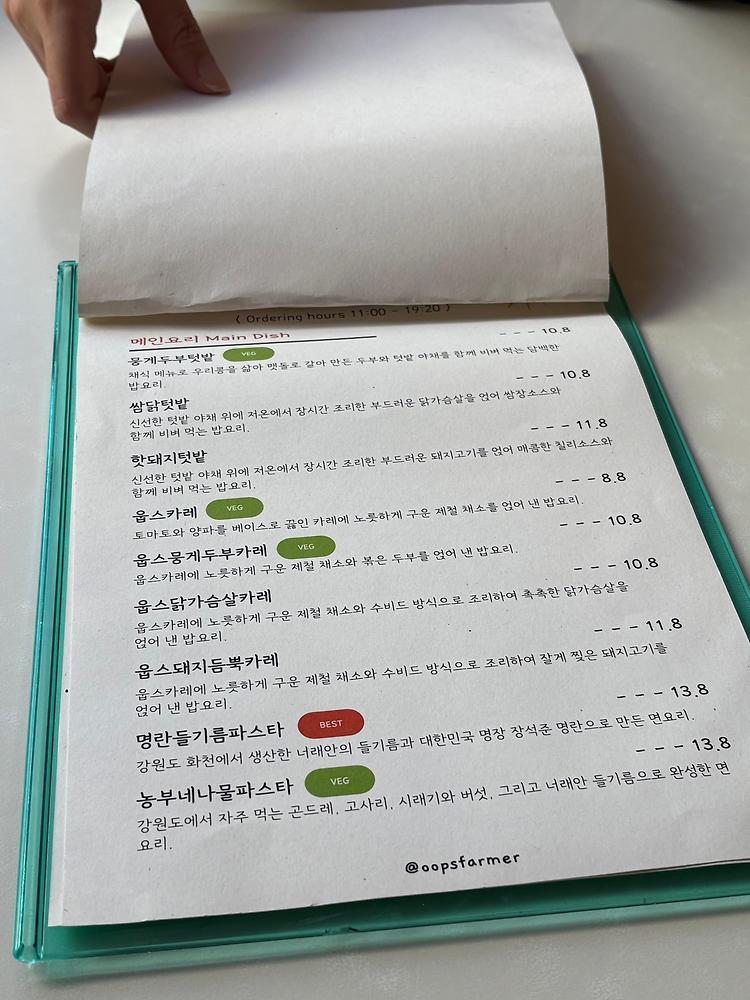 ( Ordering hours 11:00 - 19:20 )
메인요리 Main Dish
뭉게두부텃밭 VEG - - - 10.8
채식 메뉴로 우리콩을 삶아 맷돌로 갈아 만든 두부와 텃밭 야채를 함께 비벼 먹는 담백한
밥요리.
쌈닭텃밭 - - - 10.8
신선한 텃밭 야채 위에 저온에서 장시간 조리한 부드러운 닭가슴살을 얹어 쌈장소스와
함께 비벼 먹는 밥요리.
핫돼지텃밭 - - - 11.8
신선한 텃밭 야채 위에 저온에서 장시간 조리한 부드러운 돼지고기를 얹어 매콤한 칠리소스와
함께 비벼 먹는 밥요리.
웁스카레 VEG - - - 8.8
토마토와 양파를 베이스로 끓인 카레에 노릇하게 구운 제철 채소를 얹어 낸 밥요리.
웁스뭉게두부카레 VEG - - - 10.8
웁스카레에 노릇하게 구운 제철 채소와 볶은 두부를 얹어 낸 밥요리.
웁스닭가슴살카레 - - - 10.8
웁스카레에 노릇하게 구운 제철 채소와 수비드 방식으로 조리하여 촉촉한 닭가슴살을
얹어 낸 밥요리.
웁스돼지듬뿍카레 - - - 11.8
웁스카레에 노릇하게 구운 제철 채소와 수비드 방식으로 조리하여 잘게 찢은 돼지고기를
얹어 낸 밥요리.
명란들기름파스타 BEST - - - 13.8
강원도 화천에서 생산한 너래안의 들기름과 대한민국 명장 장석준 명란으로 만든 면요리.
농부네나물파스타 VEG - - - 13.8
강원도에서 자주 먹는 곤드레, 고사리, 시래기와 버섯, 그리고 너래안 들기름으로 완성한 면
요리.
@oopsfarmer